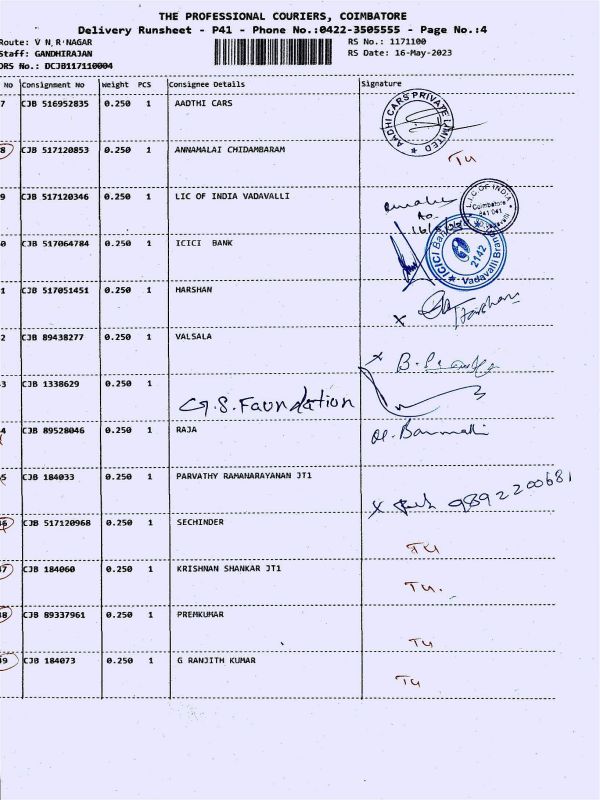 THE PROFESSIONAL COURIERS, COIMBATORE
Delivery Runsheet - P41 - Phone No.:0422-3505555 - Page No.:4
Route: V N R NAGAR RS No.: 1171100
Staff: GANDHIRAJAN RS Date: 16-May-2023
DRS No.: DCJB117110004
No Consignment No Weight PCS Consignee Details Signature
7 CJB 516952835 0.250 1 AADTHI CARS
AADHI CARS PRIVATE LIMITED
8 CJB 517120853 0.250 1 ANNAMALAI CHIDAMBARAM
TU
9 CJB 517120346 0.250 1 LIC OF INDIA VADAVALLI
L.I.C OF INDIA
Coimbatore
641 041
Vadavalli
0 CJB 517064784 0.250 1 ICICI BANK
ICICI Bank
2142
Vadavalli
1 CJB 517051451 0.250 1 HARSHAN
x Harshan
2 CJB 89438277 0.250 1 VALSALA
x B.
3 CJB 1338629 0.250 1
G.S. Foundation
4 CJB 89528046 0.250 1 RAJA
5 CJB 184033 0.250 1 PARVATHY RAMANARAYANAN JT1
x 9892200681
6 CJB 517120968 0.250 1 SECHINDER
TU
7 CJB 184060 0.250 1 KRISHNAN SHANKAR JT1
TU.
8 CJB 89337961 0.250 1 PREMKUMAR
TU
9 CJB 184073 0.250 1 G RANJITH KUMAR
TU